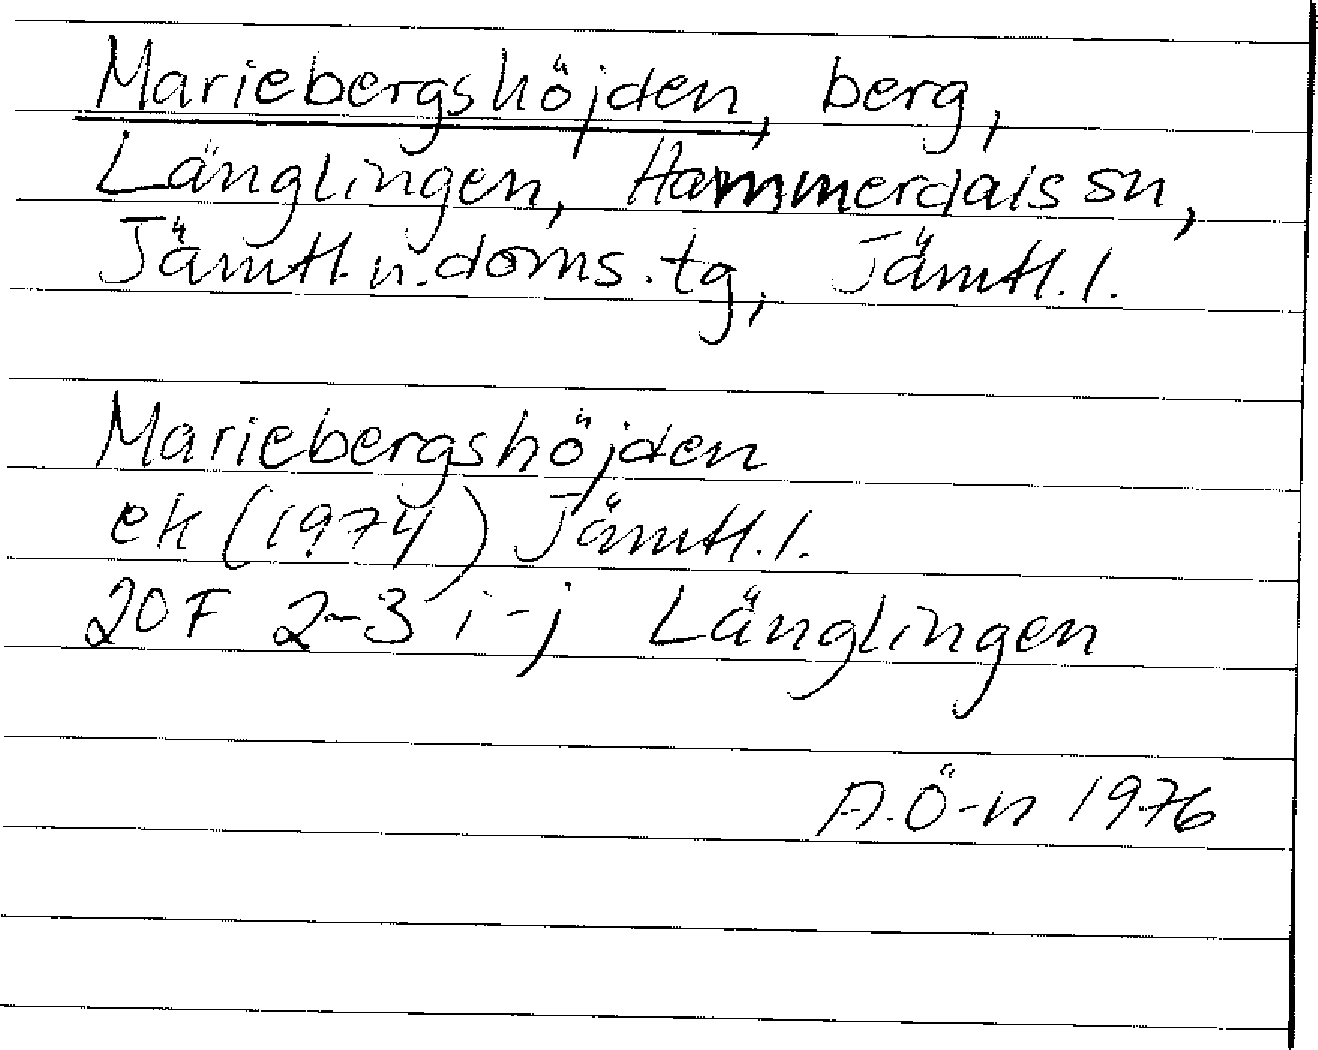 Mariebergshöjden, berg,
Länglingen, Hammerdals sn,
Jämtl. n. doms. tg, Jämtl. l.
Mariebergshöjden
ek (1974) Jämtl. l.
20F 2-3 i-j Länglingen
A. Ö-n 1976